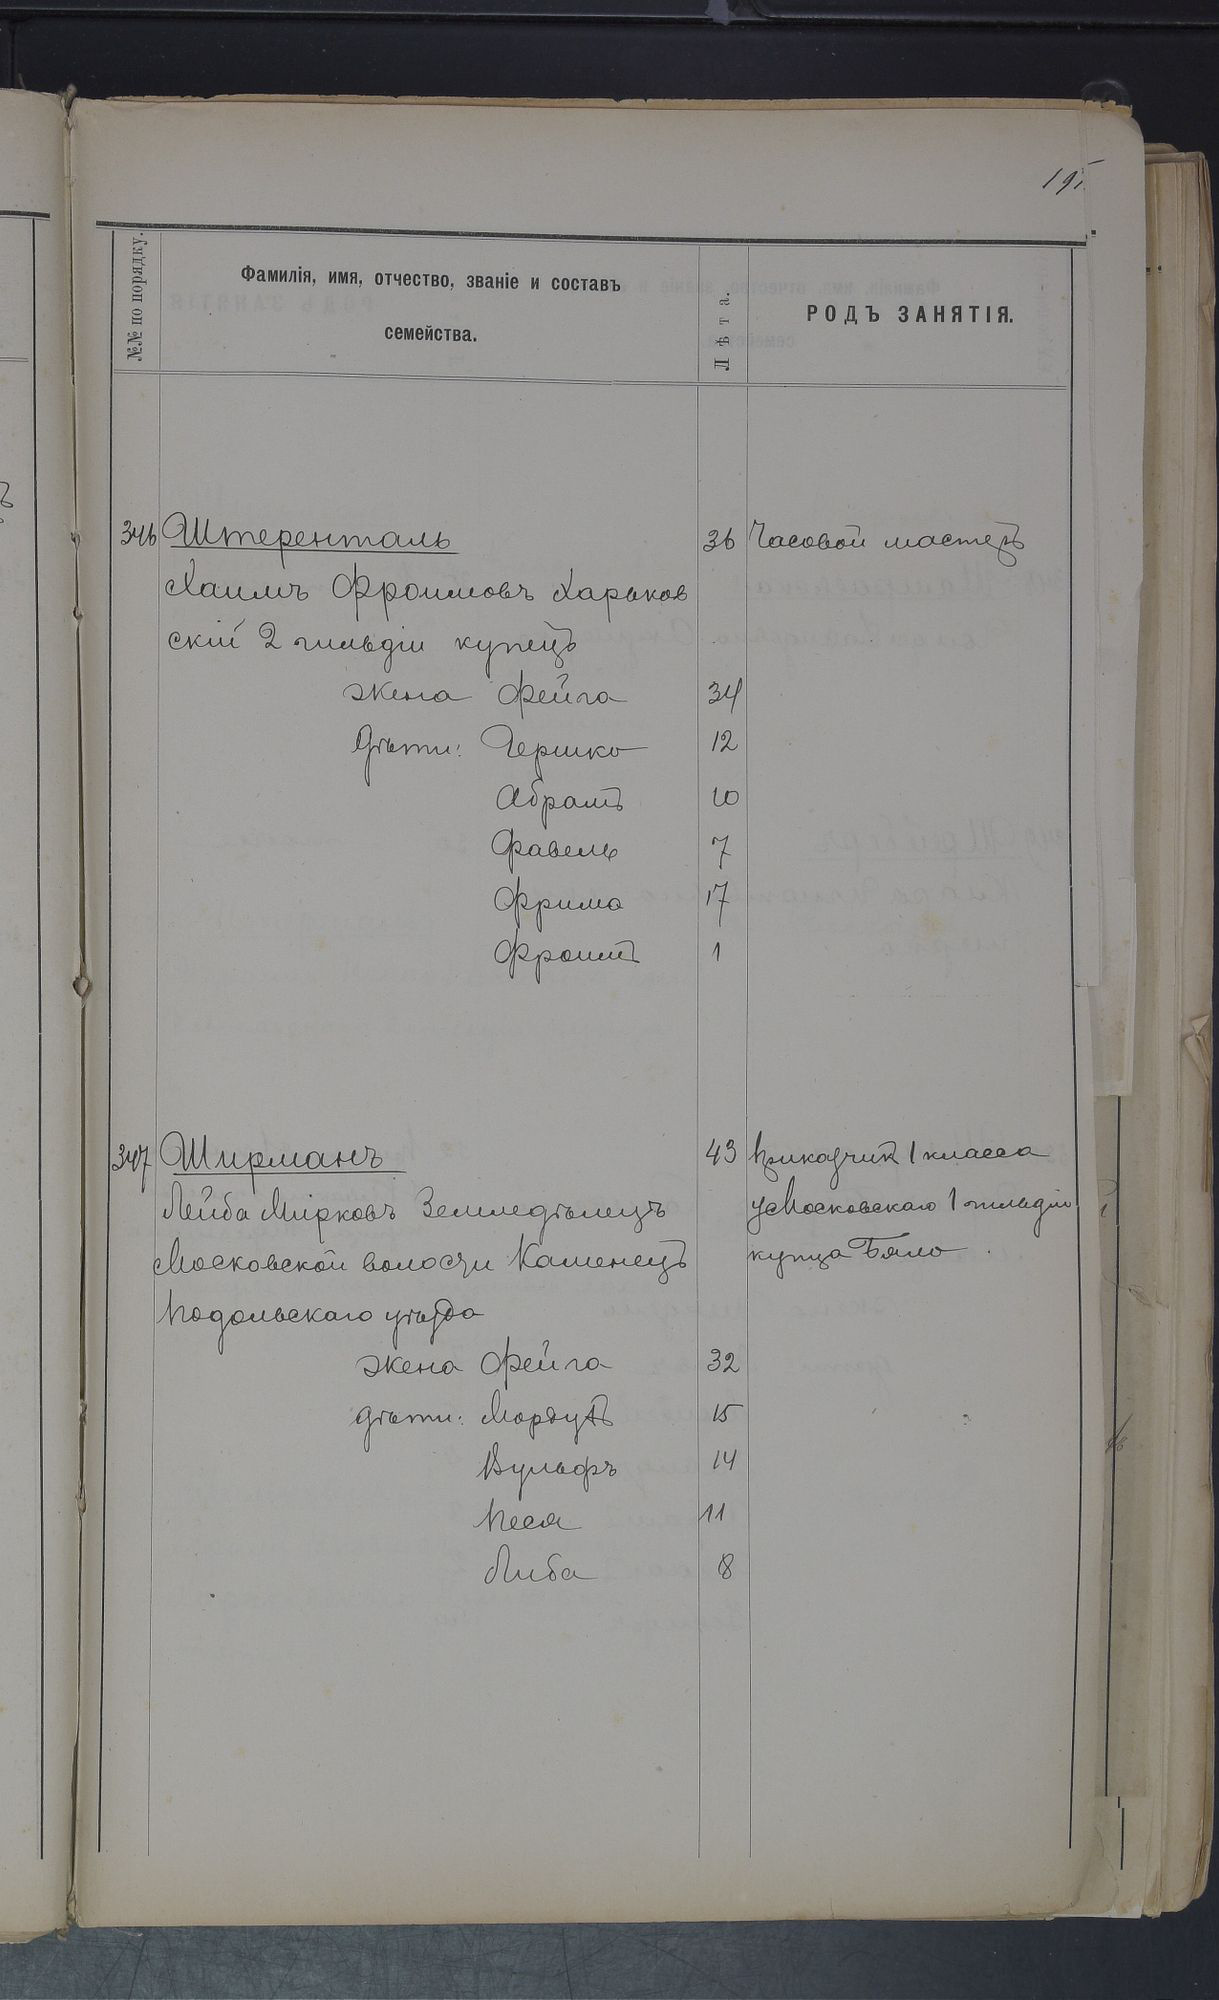 195
№№ по порядку.
Фамилія, имя, отчество, званіе и составъ
семейства.
Лѣта.
РОДЪ ЗАНЯТІЯ.
346 Штеренталь 36 Часовой мастеръ
Хаимъ Фроимовъ Харьков
скій 2 гильдіи купецъ
жена Фейга 34
Дѣти: Гершко 12
Абрамъ 10
Фавель 7
Фрима 17
Фроимъ 1
347 Ширманъ 43 Прикащикъ 1 класса
Лейба Мирковъ Земледѣлецъ у Московскаго 1 гильдіи
Московской волости Каменецъ купца Бяло
Подольскаго уѣзда
жена Фейга 32
дѣти: Мордухъ 15
Вульфъ 14
Песя 11
Либа 8